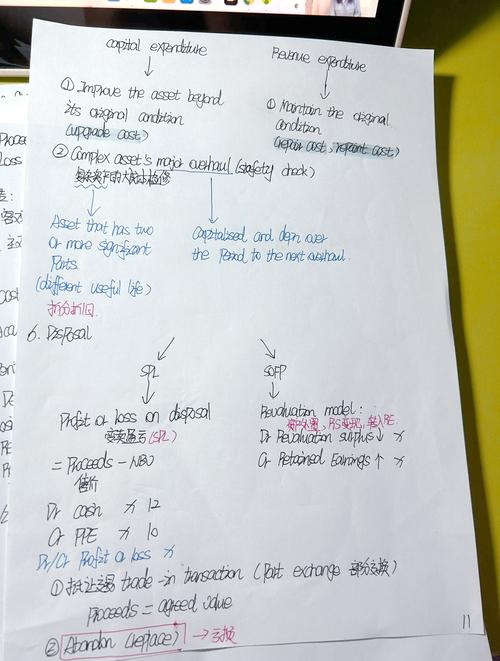 capital expenditure
Revenue expenditure
① Improve the asset beyond
its original condition
(upgrade cost)
① Maintain the original
condition
(repair cost, repaint cost)
② Complex asset's major overhaul (safety check)
复杂资产的大成本检修
Asset that has two
or more significant
Parts
(different useful life)
拆分折旧.
Capitalised and depn over
the Period to the next overhaul.
6. Disposal
SPL
SOFP
Profit or loss on disposal
变卖盈亏 (SPL)
= Proceeds - NBV
售价
Dr cash x 12
Cr PPE x 10
Dr/Cr Profit or loss x
Revaluation model:
RS变现, 转入RE.
Dr Revaluation surplus ↓ x
Cr Retained Earnings ↑ x
① 抵让交易 trade-in transaction (Part exchange 部分交换)
Proceeds = agreed value
② Abandon (replace) → 替换
11